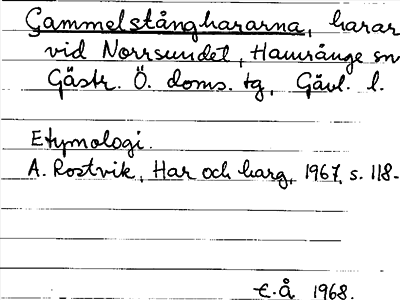 Gammelstånghararna, harar
vid Norrsundet, Hamrånge sn
Gästr. Ö. doms. tg, Gävl. l.
Etymologi.
A. Rostvik, Har och harg, 1967, s. 118-
E.Å 1968.